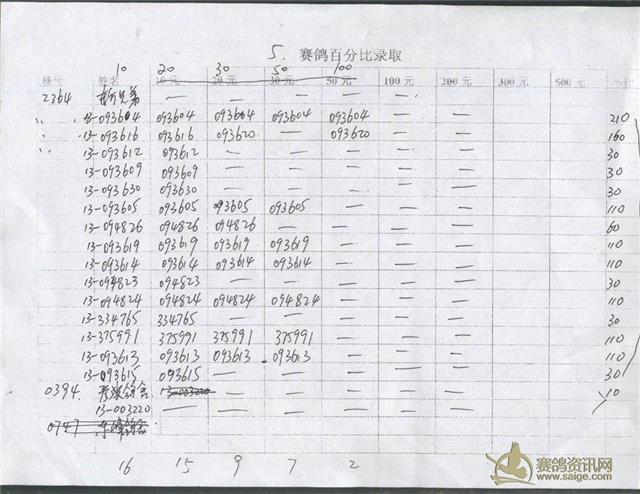 5. 赛鸽百分比录取
10 20 30 50 100
姓名 10元 20元 30元 50元 100元 200元 300元 500元
2364 兄弟 — — — — — —
13-093604 093604 093604 093604 093604 — — 210
13-093616 093616 093620 — 093620 — — 160
13-093612 093612 — — — — — 30
13-093609 093609 — — — — — 30
13-093630 093630 — — — — — 30
13-093605 093605 093605 093605 — — — 110
13-094826 094826 094826 — — — — 60
13-093619 093619 093619 093619 — — — 110
13-093614 093614 093614 093614 — — — 110
13-094823 094823 — — — — — 30
13-094824 094824 094824 094824 — — — 110
13-334765 334765 — — — — — 30
13-375991 375991 375991 375991 — — — 110
13-093613 093613 093613 093613 — — — 110
13-093615 093615 — — — — — 30
0394 13-003220 — — — — — 10
13-003220 — — — — — —
0747
16 15 9 7 2
赛鸽资讯网
www.saige.com